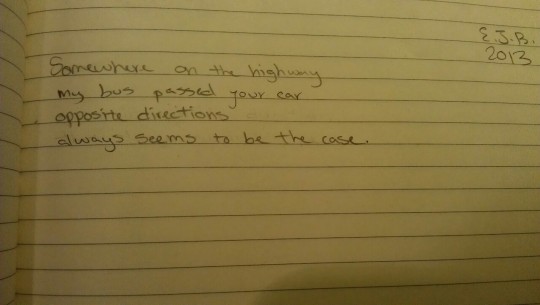 E.J.B.
2013
Somewhere on the highway
my bus passed your car
opposite directions
always seems to be the case.